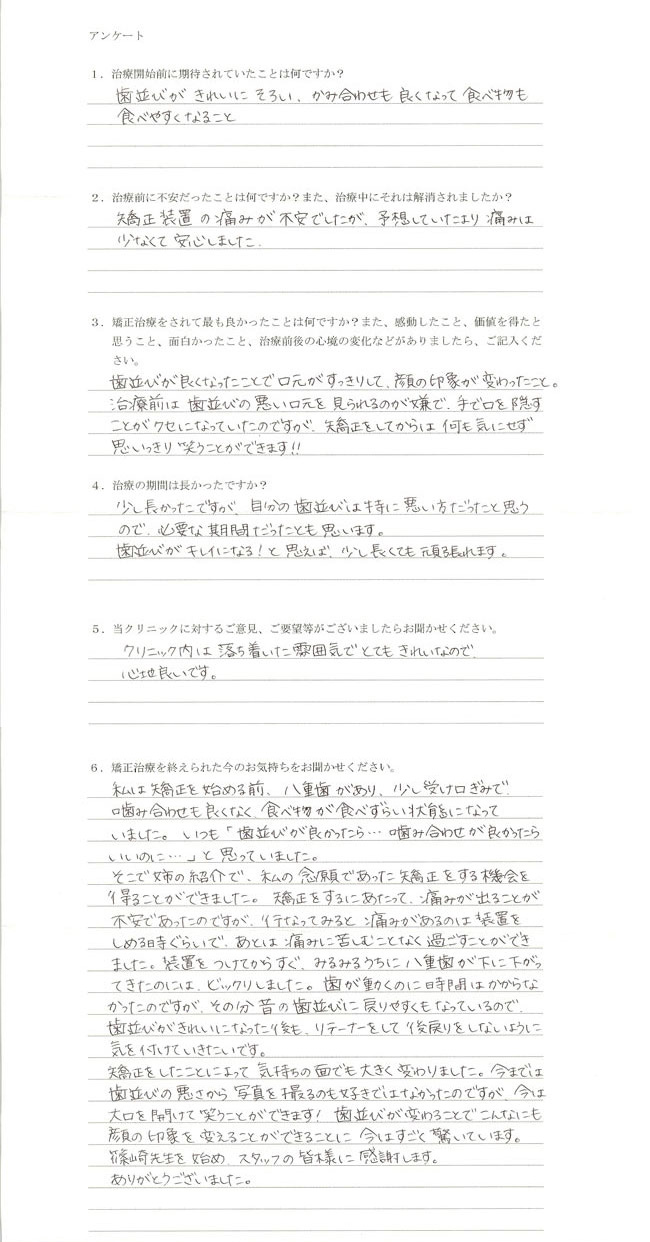 アンケート
1．治療開始前に期待されていたことは何ですか？
歯並びが きれいに そろい、かみ合わせも 良くなって 食べ物も
食べやすくなること
2．治療前に不安だったことは何ですか？また、治療中にそれは解消されましたか？
矯正装置の痛みが不安でしたが、予想していたより痛みは
少なくて安心しました。
3．矯正治療をされて最も良かったことは何ですか？また、感動したこと、価値を得たと
思うこと、面白かったこと、治療前後の心境の変化などがありましたら、ご記入くだ
さい。
歯並びが良くなったことで口元がすっきりして、顔の印象が変わったこと。
治療前は歯並びの悪い口元を見られるのが嫌で、手で口を隠す
ことがクセになっていたのですが、矯正をしてからは何も気にせず
思いっきり笑うことができます!!
4．治療の期間は長かったですか？
少し長かったですが、自分の歯並びは特に悪い方だったと思う
ので、必要な期間だったとも思います。
歯並びがキレイになる！と思えば、少し長くても頑張れます。
5．当クリニックに対するご意見、ご要望等がございましたらお聞かせください。
クリニック内は落ち着いた雰囲気でとてもきれいなので、
心地良いです。
6．矯正治療を終えられた今のお気持ちをお聞かせください。
私は矯正を始める前、八重歯があり、少し受け口ぎみで、
噛み合わせも良くなく、食べ物が食べずらい状態になって
いました。いつも「歯並びが良かったら…噛み合わせが良かったら
いいのに…」と思っていました。
そこで姉の紹介で、私の念願であった矯正をする機会を
得ることができました。矯正をするにあたって、痛みが出ることが
不安であったのですが、行なってみると痛みがあるのは装置を
しめる時ぐらいで、あとは痛みに苦しむことなく過ごすことができ
ました。装置をつけてからすぐ、みるみるうちに八重歯が下に下がっ
てきたのには、ビックリしました。歯が動くのに時間はかからな
かったのですが、その分昔の歯並びに戻りやすくもなっているので、
歯並びがきれいになった後も、リテーナーをして後戻りをしないように
気を付けていきたいです。
矯正をしたことによって気持ちの面でも大きく変わりました。今までは
歯並びの悪さから写真を撮るのも好きではなかったのですが、今は
大口を開けて笑うことができます！歯並びが変わることでこんなにも
顔の印象を変えることができることに今はすごく驚いています。
篠崎先生を始め、スタッフの皆様に感謝します。
ありがとうございました。